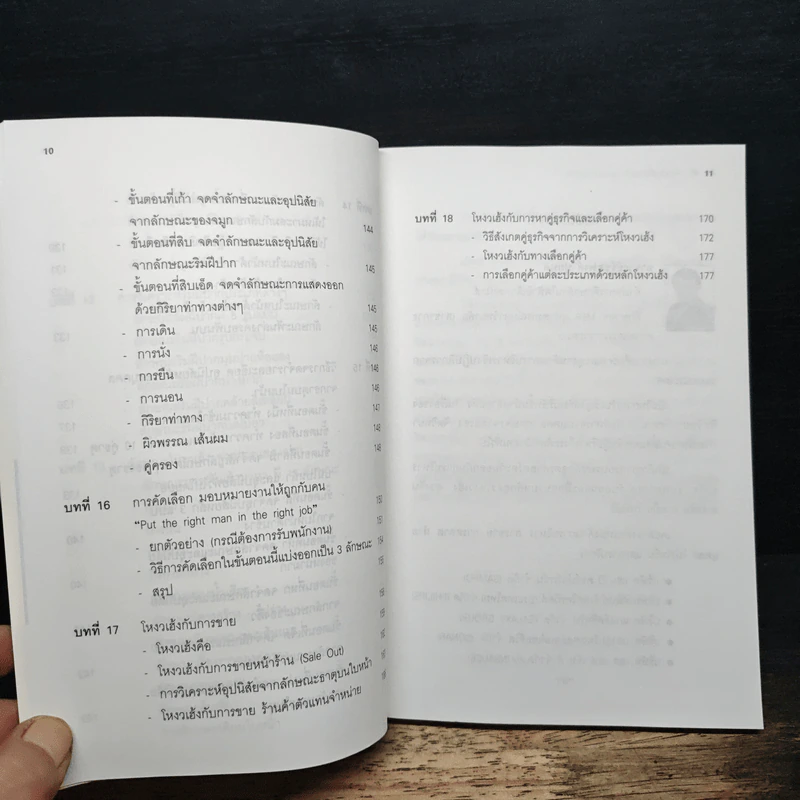 10
- ขั้นตอนที่เก้า จดจำลักษณะและอุปนิสัย
จากลักษณะของจมูก 144
- ขั้นตอนที่สิบ จดจำลักษณะและอุปนิสัย
จากลักษณะริมฝีปาก 145
- ขั้นตอนที่สิบเอ็ด จดจำลักษณะการแสดงออก
ด้วยกิริยาท่าท่างต่างๆ 145
- การเดิน 145
- การนั่ง 146
- การยืน 146
- การนอน 146
- กิริยาท่าทาง 147
- ผิวพรรณ เส้นผม 148
- คู่ครอง 148
บทที่ 16 การคัดเลือก มอบหมายงานให้ถูกกับคน
"Put the right man in the right job" 150
- ยกตัวอย่าง (กรณีต้องการรับพนักงาน) 151
- วิธีการคัดเลือกในขั้นตอนนี้แบ่งออกเป็น 3 ลักษณะ 154
- สรุป 155
บทที่ 17 โหงวเฮ้งกับการขาย
- โหงวเฮ้งคือ
- โหงวเฮ้งกับการขายหน้าร้าน (Sale Out)
- การวิเคราะห์อุปนิสัยจากลักษณะธาตุบนใบหน้า
- โหงวเฮ้งกับการขาย ร้านค้าตัวแทนจำหน่าย
11
บทที่ 18 โหงวเฮ้งกับการหาคู่ธุรกิจและเลือกคู่ค้า 170
- วิธีสังเกตคู่ธุรกิจจากการวิเคราะห์โหงวเฮ้ง 172
- โหงวเฮ้งกับทางเลือกคู่ค้า 177
- การเลือกคู่ค้าแต่ละประเภทด้วยหลักโหงวเฮ้ง 177